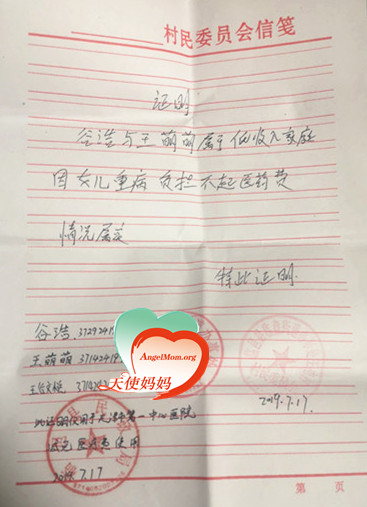 村民委员会信笺
证明
谷浩与王萌萌属于低收入家庭
因女儿重病负担不起医药费
情况属实
特此证明
谷浩 3729241
王萌萌 37142419
AngelMom.org
天使妈妈
2019.7.17
此证明仅用于天津市第一中心医院
减免医疗费使用
2019.7.17
第 页